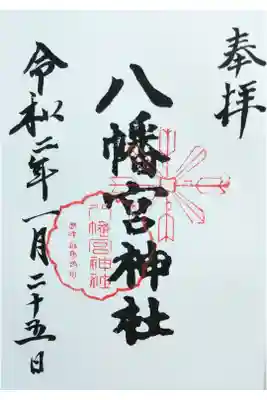 奉拝
八幡宮神社
八幡宮神社
令和二年一月二十五日